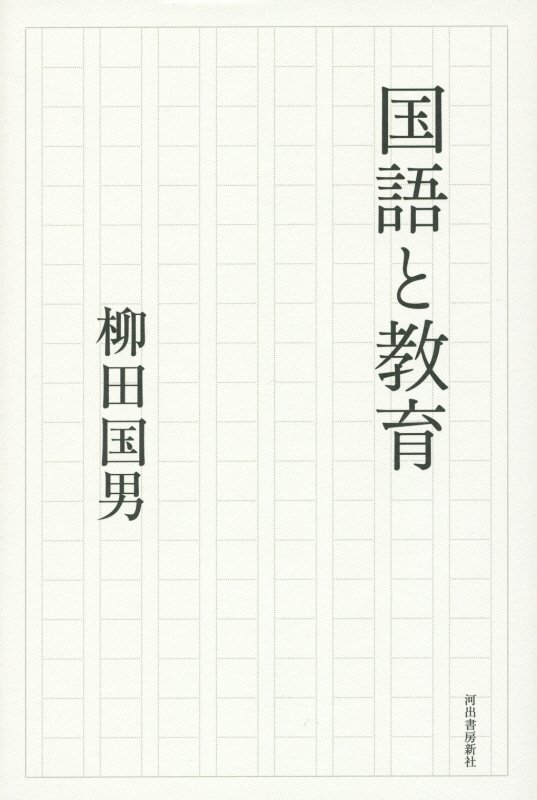 国語と教育
柳田国男
河出書房新社